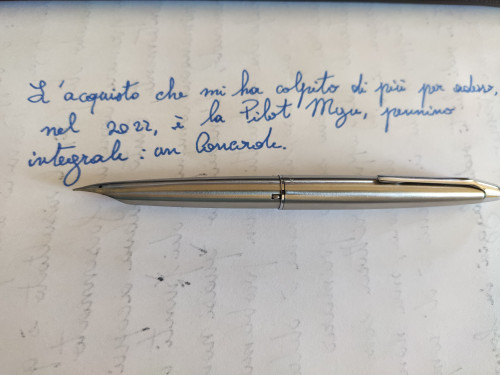 L'acquisto che mi ha colpito di più per adesso,
nel 2022, è la Pilot Myu, pennino
integrale: un Concorde.